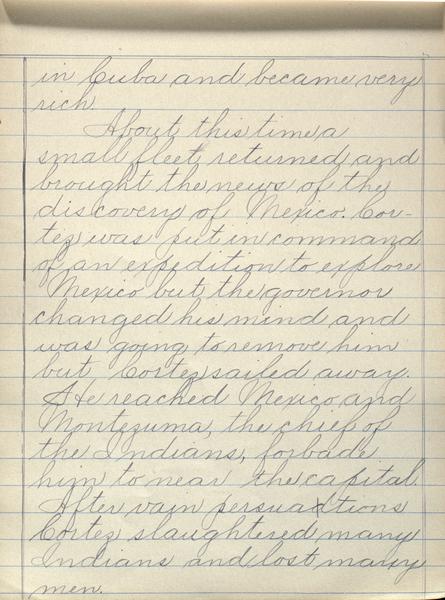 in Cuba and became very
rich.
About this time a
small fleet returned and
brought the news of the
discovery of Mexico. Cor-
tez was put in command
of an expedition to explore
Mexico but the governor
changed his mind and
was going to remove him
but Cortez sailed away.
He reached Mexico and
Montezuma, the chief of
the Indians, forbade
him to near the capital.
After vain persuations
Cortez slaughtered many
Indians and lost many
men.